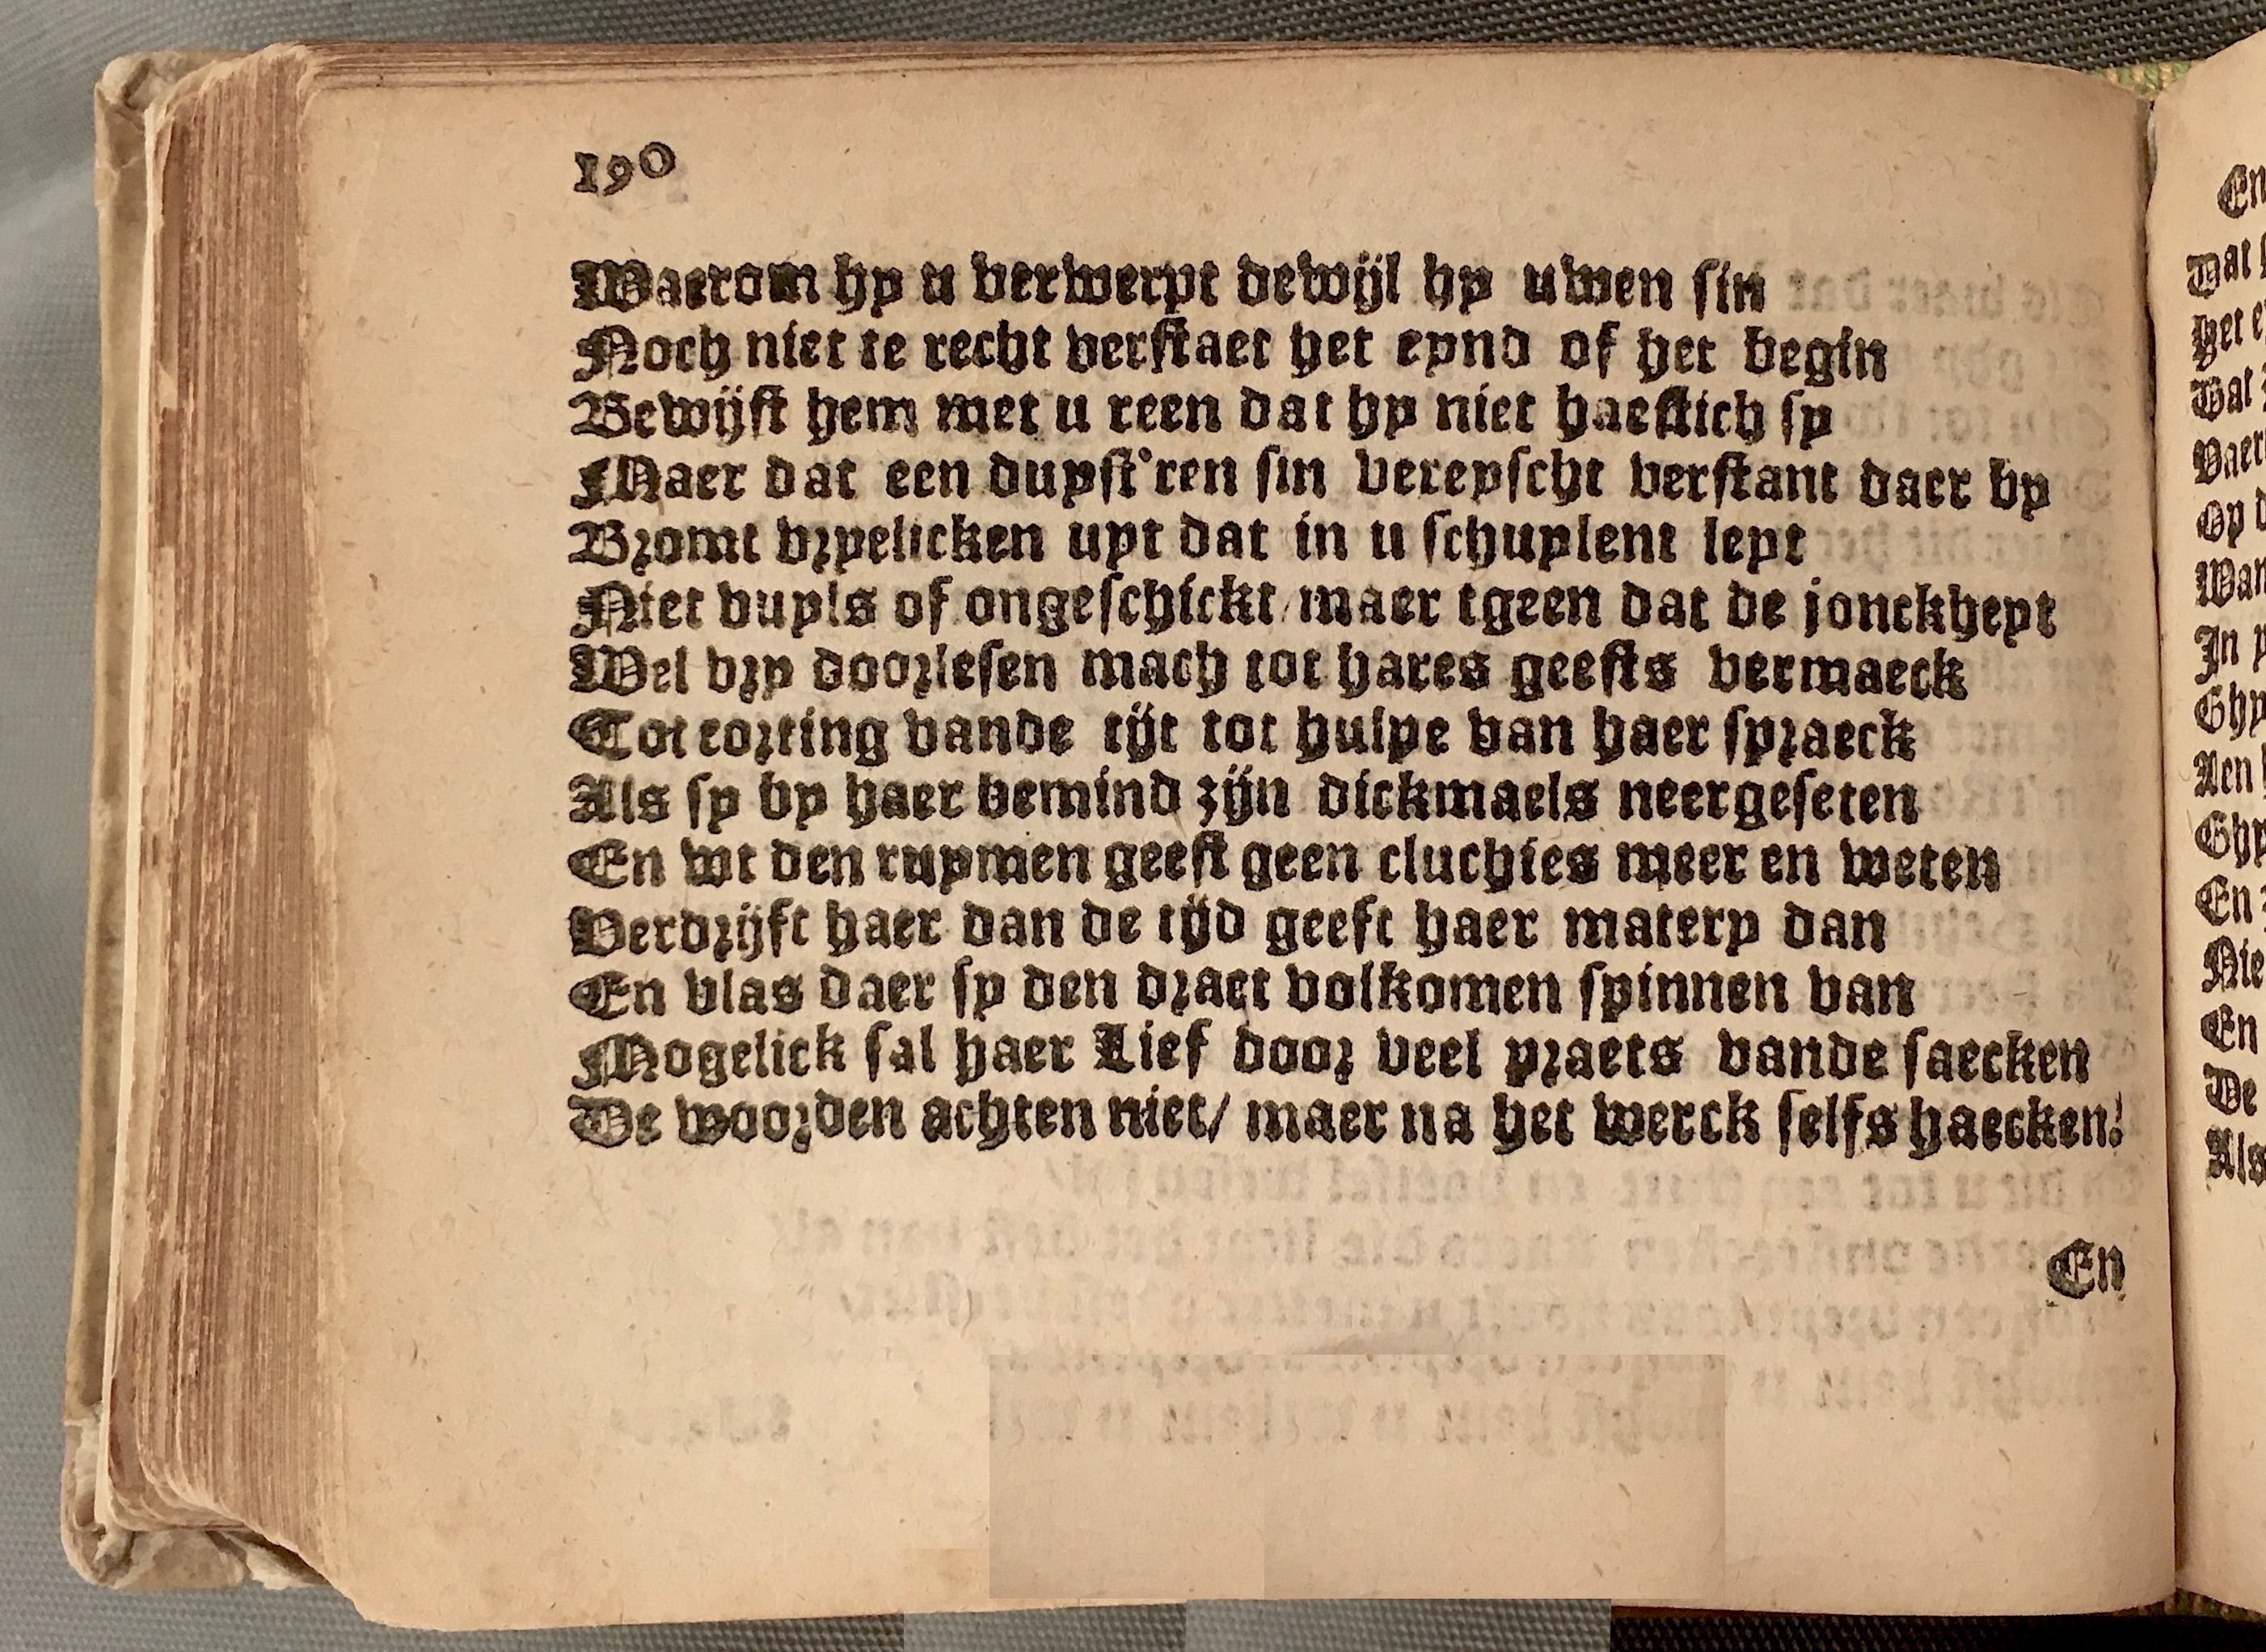 190
Waerom hy u verwerpt dewijl hy uwen sin
Noch niet te recht verstaet het eynd of het begin
Bewijst hem met u reen dat hy niet haestich sy
Maer dat een duyst'ren sin vereyscht verstant daer by
Bromt vryelicken uyt dat in u schuylent leyt
Niet vuyls of ongeschickt/maer tgeen dat de jonckheyt
Wel vry doorlesen mach tot hares geests vermaeck
Tot corting vande tijt tot hulpe van haer spraeck
Als sy by haer bemind zijn dickmaels neergeseten
En wt den ruymen geest geen cluchies meer en weten
Verdrijft haer dan de tijd geeft haer matery dan
En vlas daer sy den draet volkomen spinnen van
Mogelick sal haer Lief door veel praets vande saecken
De woorden achten niet/ maer na het werck selfs haecken!
En
En
Dat
Het
Dat
Op
In
Ghy
Aen
En
Nie
En
De
Als